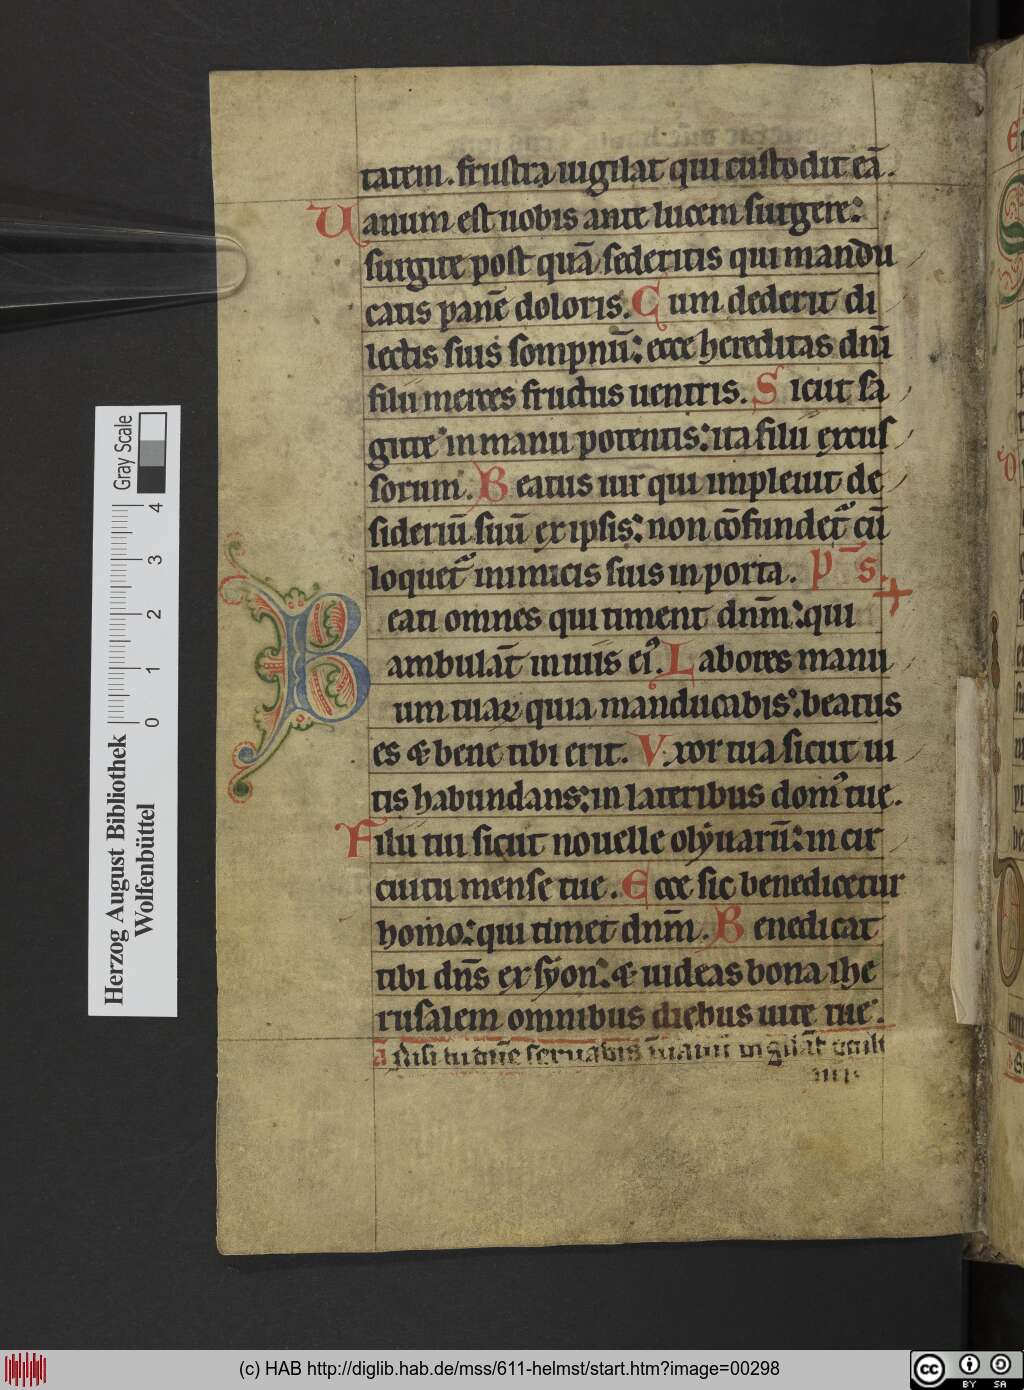 tatem. frustra uigilat qui custodit eā.
Uanum est uobis ante lucem surgere:
surgite post quā sederitis qui mandu
catis panē doloris. Cum dederit di
lectis suis sompnū: ecce hereditas dn̄i
filii merces fructus uentris. Sicut sa
gitte in manu potentis: ita filii excus
sorum. Beatus uir qui impleuit de
sideriū suū ex ipsis: non cōfundet᷑ cū
loquet᷑ inimicis suis in porta. p̄s.
Beati omnes qui timent dn̄m: qui
ambulāt in uiis ei᷒. Labores manu
um tuaꝝ quia manducabis: beatus
es & bene tibi erit. Uxor tua sicut ui
tis habundans: in lateribus dom᷒ tuę.
Filii tui sicut nouelle olyuarū: in cir
cuitu mense tue. Ecce sic benedicetur
homo: qui timet dn̄m. Benedicat
tibi dn̄s ex syon: & uideas bona ihe
rusalem omnibus diebus uite tue.
ā Nisi tu dn̄e seruabis
Herzog August Bibliothek
Wolfenbüttel
0 1 2 3 4
Gray Scale
(c) HAB http://diglib.hab.de/mss/611-helmst/start.htm?image=00298
cc BY SA